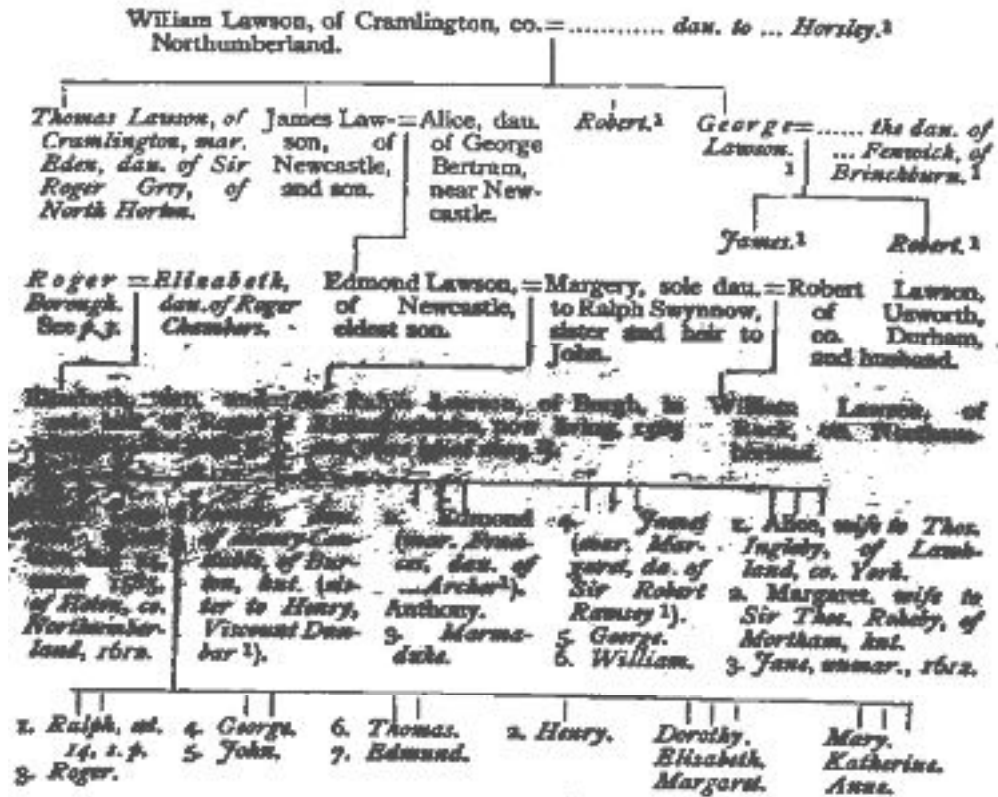 William Lawson, of Cramlington, co. = ............ dau. to ... Horsley.¹
Northumberland.
Thomas Lawson, of
Cramlington, mar.
Eden, dau. of Sir
Roger Grey, of
North Horton.
James Law-
son, of
Newcastle,
2nd son.
= Alice, dau.
of George
Bertram,
near New-
castle.
Robert.¹
George
Lawson.
¹
= ...... the dau. of
... Fenwick, of
Brinchburn.¹
James.¹
Robert.¹
Roger
Borough.
See p. 3.
= Elizabeth,
dau. of Roger
Chambers.
Edmond Lawson,
of Newcastle,
eldest son.
= Margery, sole dau.
to Ralph Swynnow,
sister and heir to
John.
= Robert Lawson,
of Usworth,
co. Durham,
2nd husband.
Elizabeth,
Lawson, of Burgh, in
now living,
William Lawson, of
Rock, co. Northum-
berland.
of Hoton, co.
Northumber-
land, 1612.
of
knt. (sis-
ter to Henry,
Viscount Dun-
bar ¹).
2. Edmond
(mar. Fran-
ces, dau. of
... Archer¹).
Anthony.
3. Marma-
duke.
4. James
(mar. Mar-
garet, da. of
Sir Robert
Ramsey ¹).
5. George.
6. William.
1. Alice, wife to Thos.
Ingleby, of Lamb-
land, co. York.
2. Margaret, wife to
Sir Thos. Rokeby, of
Mortham, knt.
3. Jane, unmar., 1612.
1. Ralph, æt.
14, s. p.
3. Roger.
4. George.
5. John.
6. Thomas.
7. Edmund.
2. Henry.
Dorothy.
Elizabeth.
Margaret.
Mary.
Katherine.
Anne.